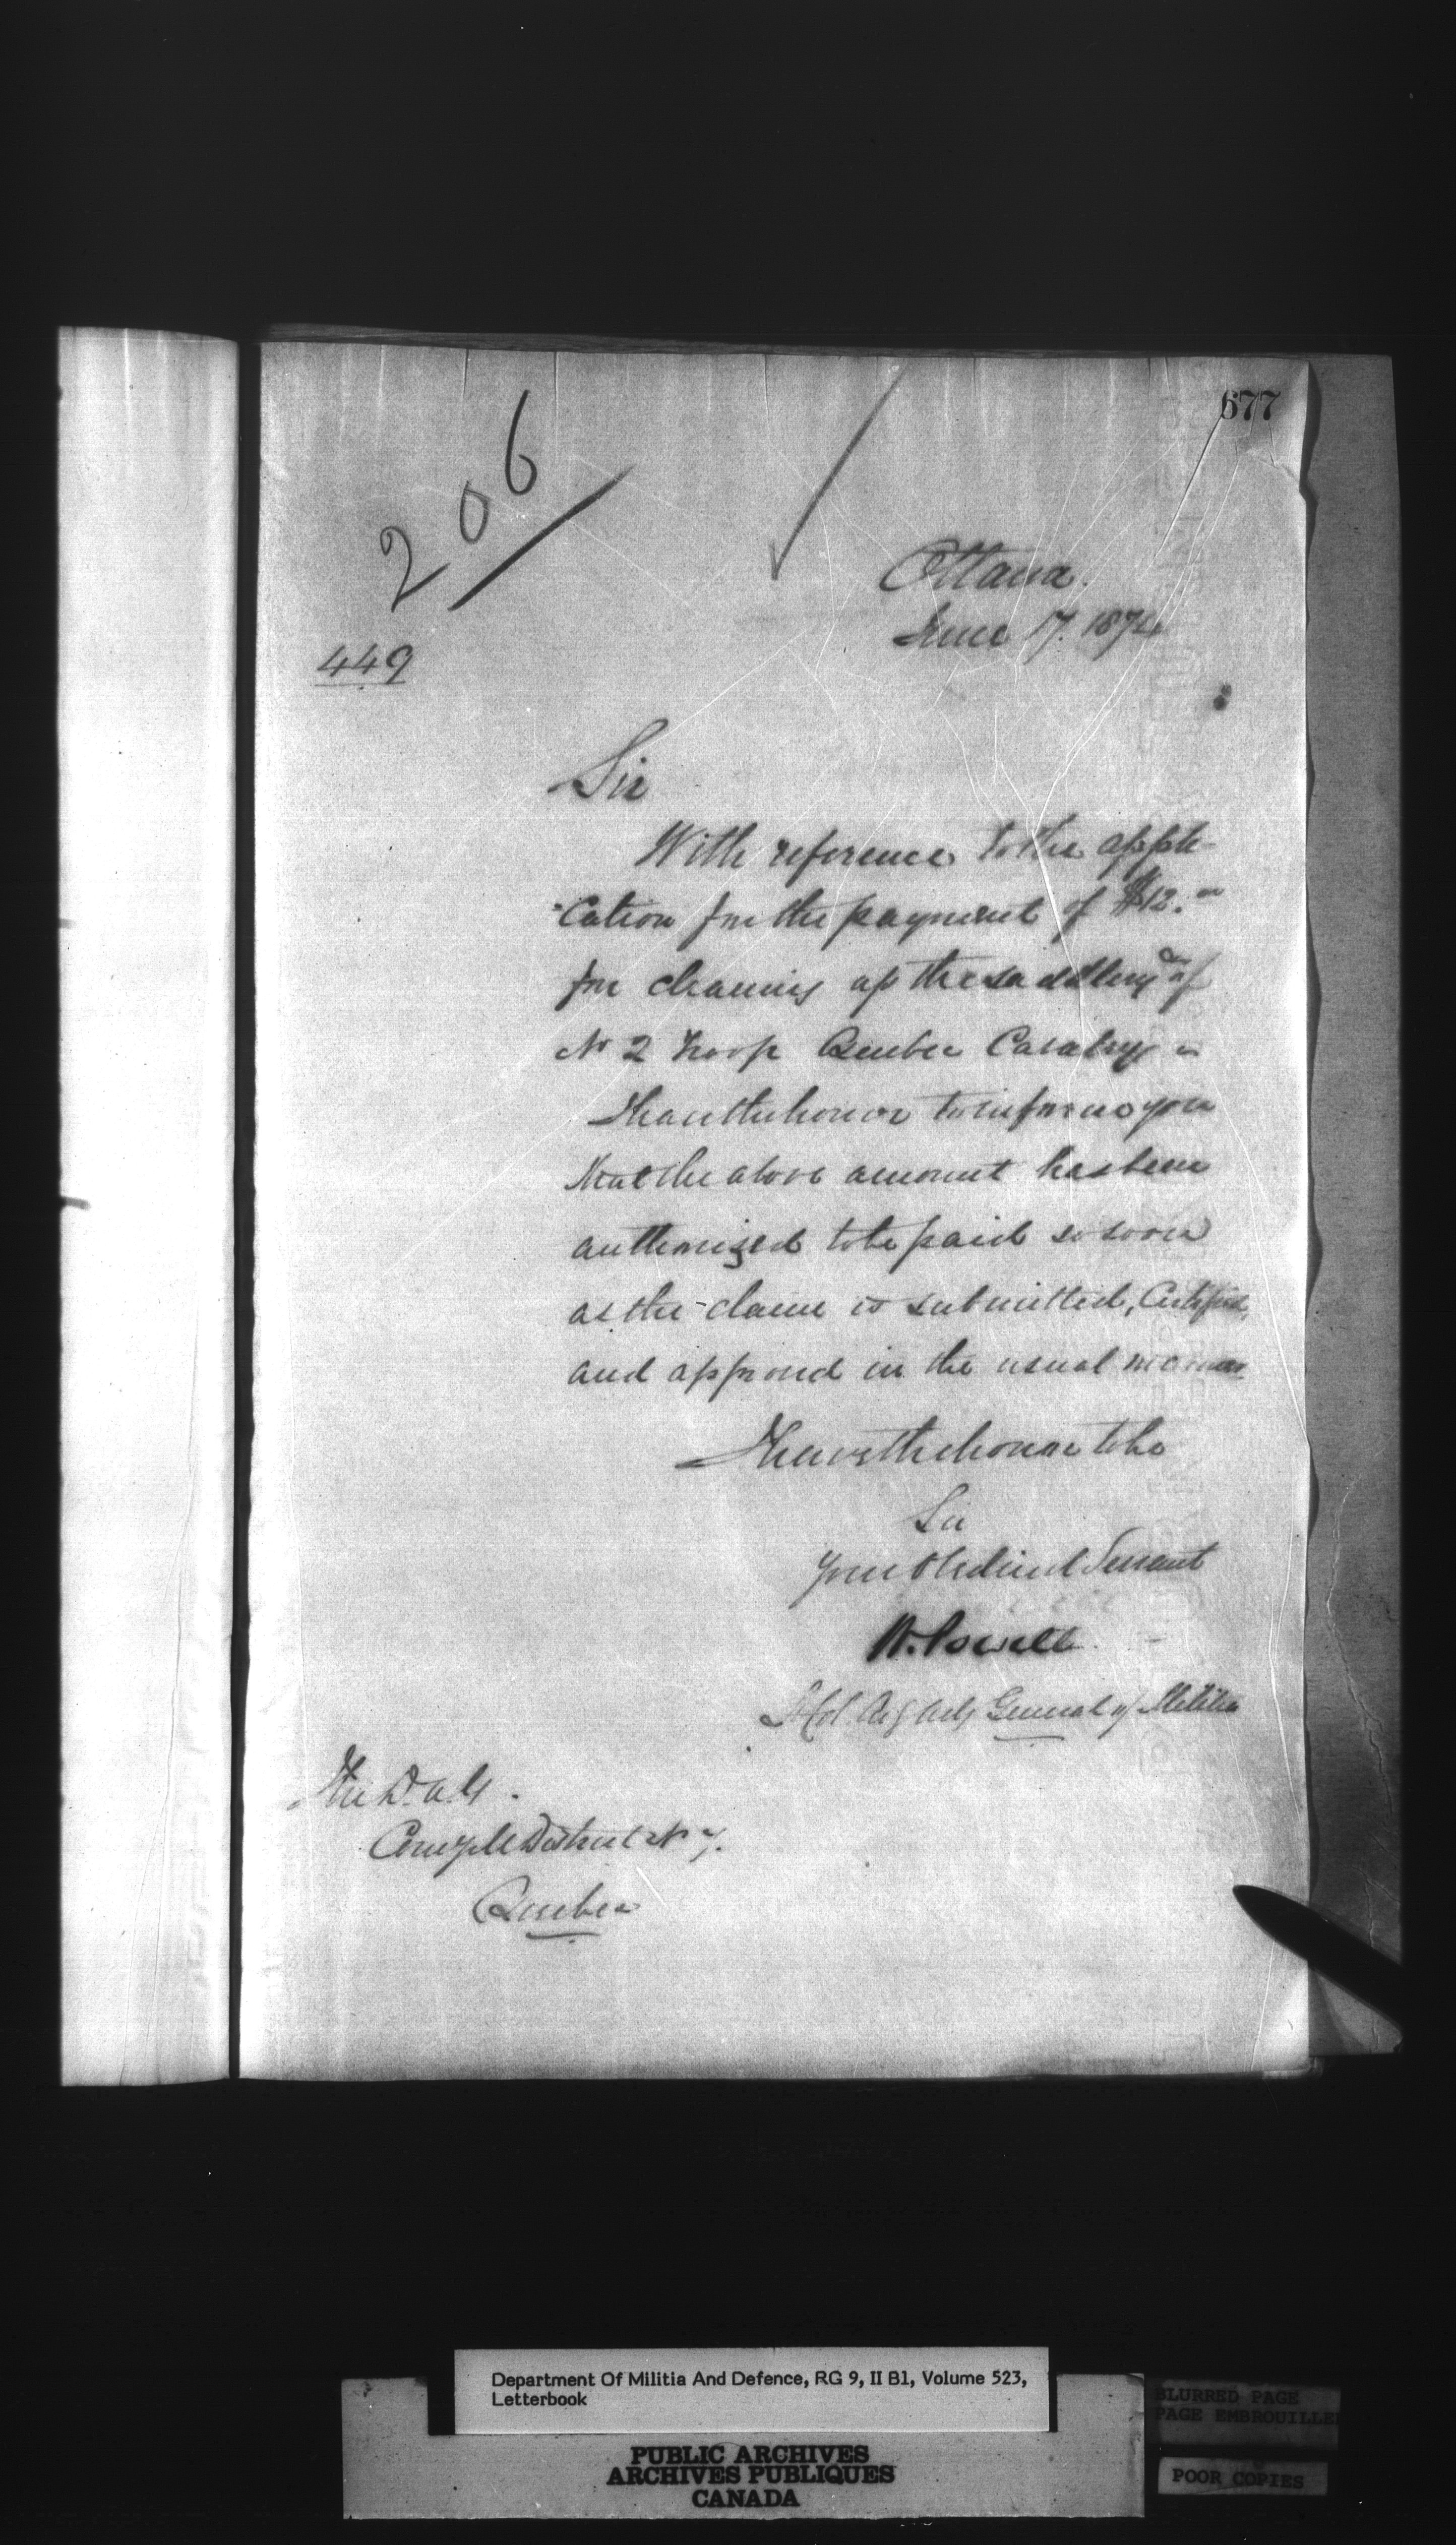 677
206
Ottawa.
June 17. 1874
449
Sir
With reference to the appli-
-cation for the payment of $12.00
for cleaning up the saddlery of
No 2 Troop Quebec Cavalry
I have the honor to inform you
that the above amount has been
authorized to be paid so soon
as the claim is submitted, Certified,
and approved in the usual manner
I have the honor to be
Sir
Your Obedient Servant
W. Powell
Lt Col. Actg Adj General of Militia
The D.A.G.
Comg M District No 7.
Quebec
Department Of Militia And Defence, RG 9, II B1, Volume 523,
Letterbook
PUBLIC ARCHIVES
ARCHIVES PUBLIQUES
CANADA
BLURRED PAGE
PAGE EMBROUILLEE
POOR COPIES